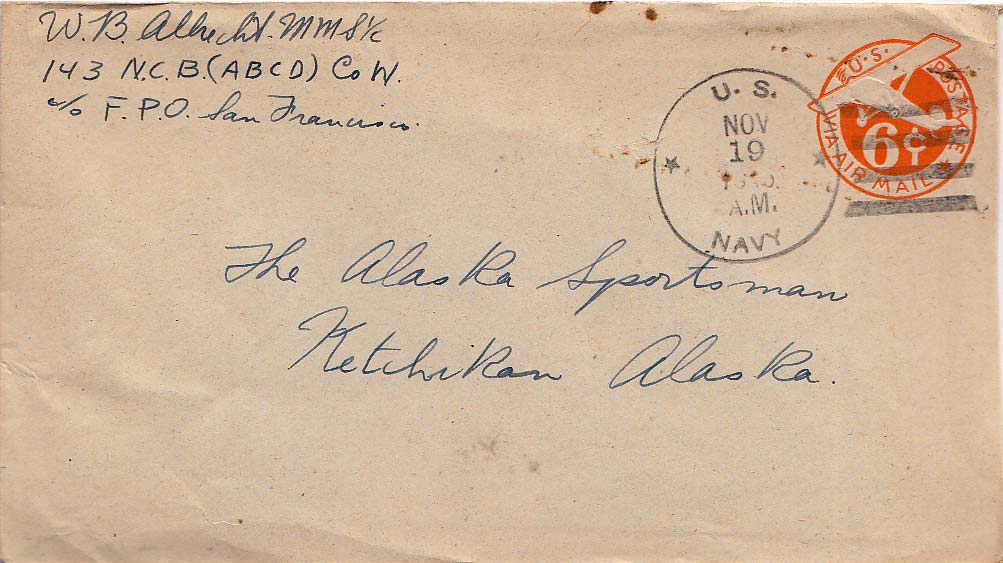 W. B. Albrecht. MMS 1/c
143 N.C.B. (ABCD) Co W.
c/o F.P.O. San Francisco.
U. S.
NOV
19
A.M.
NAVY
U.S. POSTAGE
6¢
VIA AIR MAIL
The Alaska Sportsman
Ketchikan Alaska.